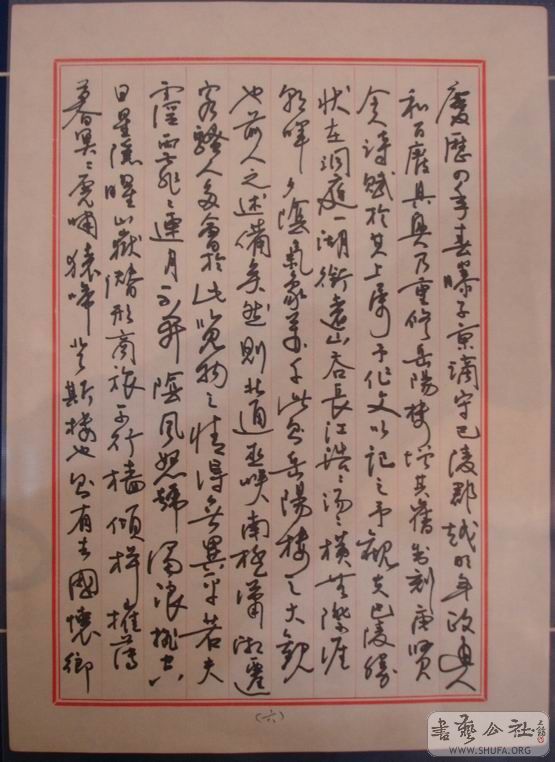 慶歷四年春滕子京謫守巴陵郡越明年政通人
和百廢具興乃重修岳陽樓增其舊制刻唐賢
今詩賦於其上屬予作文以記之予觀夫巴陵勝
狀在洞庭一湖銜遠山吞長江浩〻湯〻橫無際涯
朝暉夕陰氣象萬千此則岳陽樓之大觀
也前人之述備矣然則北通巫峽南極瀟湘遷
客騷人多會於此覽物之情得無異乎若夫
霪雨霏〻連月不開陰風怒號濁浪排空
日星隱曜山嶽潛形商旅不行檣傾楫摧薄
暮冥〻虎嘯猿啼登斯樓也則有去國懷鄉
(六)
書藝公社
WWW.SHUFA.ORG